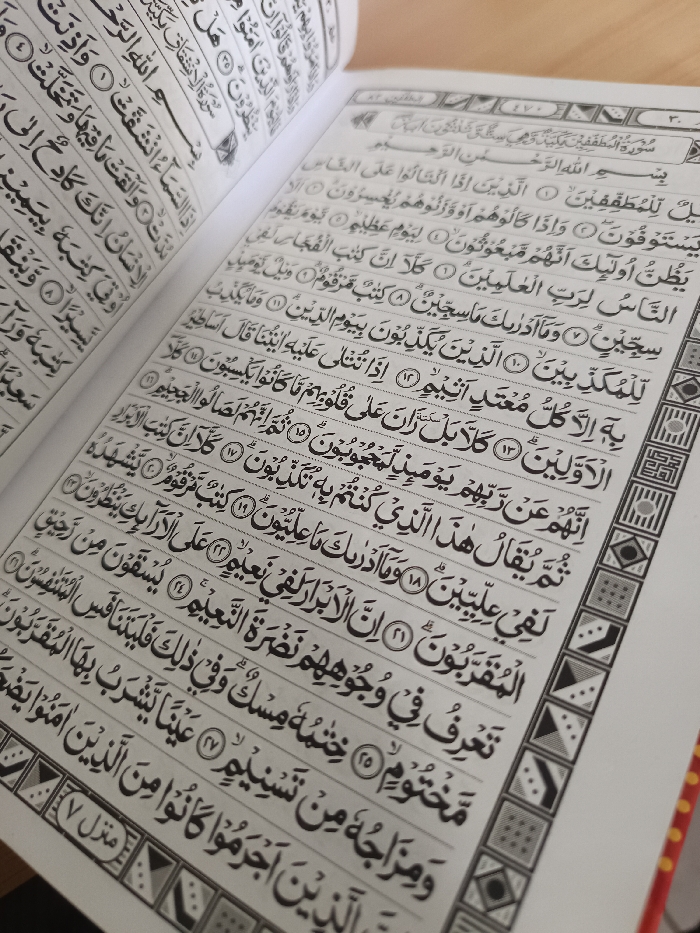 ٣٠
٤٧٠
المطففين ٨٣
سُوْرَةُ الْمُطَفِّفِيْنَ مَكِّيَّةٌ وَّهِيَ سِتٌّ وَّثَلٰثُوْنَ اٰيَةً
بِسْمِ اللهِ الرَّحْمٰنِ الرَّحِيْمِ
لٌ لِّلْمُطَفِّفِيْنَ ۙ ﴿١﴾ الَّذِيْنَ اِذَا اكْتَالُوْا عَلَى النَّاسِ
يَسْتَوْفُوْنَ ۖ ﴿٢﴾ وَاِذَا كَالُوْهُمْ اَوْ وَّزَنُوْهُمْ يُخْسِرُوْنَ ۗ ﴿٣﴾ اَلَا
يَظُنُّ اُولٰٓئِكَ اَنَّهُمْ مَّبْعُوْثُوْنَ ۙ ﴿٤﴾ لِيَوْمٍ عَظِيْمٍ ۙ ﴿٥﴾ يَّوْمَ يَقُوْمُ
النَّاسُ لِرَبِّ الْعٰلَمِيْنَ ۗ ﴿٦﴾ كَلَّآ اِنَّ كِتٰبَ الْفُجَّارِ لَفِيْ
سِجِّيْنٍ ۗ ﴿٧﴾ وَمَآ اَدْرٰىكَ مَا سِجِّيْنٌ ۗ ﴿٨﴾ كِتٰبٌ مَّرْقُوْمٌ ۗ ﴿٩﴾ وَيْلٌ يَّوْمَئِذٍ
لِّلْمُكَذِّبِيْنَ ۙ ﴿١٠﴾ الَّذِيْنَ يُكَذِّبُوْنَ بِيَوْمِ الدِّيْنِ ۗ ﴿١١﴾ وَمَا يُكَذِّبُ
بِهٖٓ اِلَّا كُلُّ مُعْتَدٍ اَثِيْمٍ ۙ ﴿١٢﴾ اِذَا تُتْلٰى عَلَيْهِ اٰيٰتُنَا قَالَ اَسَاطِيْرُ
الْاَوَّلِيْنَ ۗ ﴿١٣﴾ كَلَّا بَلْ سكتة رَانَ عَلٰى قُلُوْبِهِمْ مَّا كَانُوْا يَكْسِبُوْنَ ﴿١٤﴾ كَلَّآ
اِنَّهُمْ عَنْ رَّبِّهِمْ يَوْمَئِذٍ لَّمَحْجُوْبُوْنَ ۗ ﴿١٥﴾ ثُمَّ اِنَّهُمْ لَصَالُوا الْجَحِيْمِ ۗ ﴿١٦﴾
ثُمَّ يُقَالُ هٰذَا الَّذِيْ كُنْتُمْ بِهٖ تُكَذِّبُوْنَ ۗ ﴿١٧﴾ كَلَّآ اِنَّ كِتٰبَ الْاَبْرَارِ
لَفِيْ عِلِّيِّيْنَ ۗ ﴿١٨﴾ وَمَآ اَدْرٰىكَ مَا عِلِّيُّوْنَ ۗ ﴿١٩﴾ كِتٰبٌ مَّرْقُوْمٌ ۙ ﴿٢٠﴾ يَّشْهَدُهُ
الْمُقَرَّبُوْنَ ۗ ﴿٢١﴾ اِنَّ الْاَبْرَارَ لَفِيْ نَعِيْمٍ ۙ ﴿٢٢﴾ عَلَى الْاَرَآئِكِ يَنْظُرُوْنَ ۙ ﴿٢٣﴾
تَعْرِفُ فِيْ وُجُوْهِهِمْ نَضْرَةَ النَّعِيْمِ ۚ ﴿٢٤﴾ يُسْقَوْنَ مِنْ رَّحِيْقٍ
مَّخْتُوْمٍ ۙ ﴿٢٥﴾ خِتٰمُهٗ مِسْكٌ ۗ وَفِيْ ذٰلِكَ فَلْيَتَنَافَسِ الْمُتَنٰفِسُوْنَ ۗ ﴿٢٦﴾
وَمِزَاجُهٗ مِنْ تَسْنِيْمٍ ۙ ﴿٢٧﴾ عَيْنًا يَّشْرَبُ بِهَا الْمُقَرَّبُوْنَ
الَّذِيْنَ اَجْرَمُوْا كَانُوْا مِنَ الَّذِيْنَ اٰمَنُوْا
منزل ٧
هَلْ
بِسْمِ اللهِ الرَّحْ
اِذَا السَّمَآءُ انْشَقَّتْ ۙ ﴿١﴾ وَاَذِنَتْ
﴿٣﴾ وَاَلْقَتْ مَا فِيْهَا وَتَخَلَّتْ ۙ ﴿٤﴾
الْاِنْسَانُ اِنَّكَ كَادِحٌ اِلٰى
وْتِيَ كِتٰبَهٗ بِيَمِيْنِهٖ
يَّسِيْرًا ۙ ﴿٨﴾ وَّيَنْقَلِ
كِتٰبَهٗ وَرَآ
سَعِيْرًا